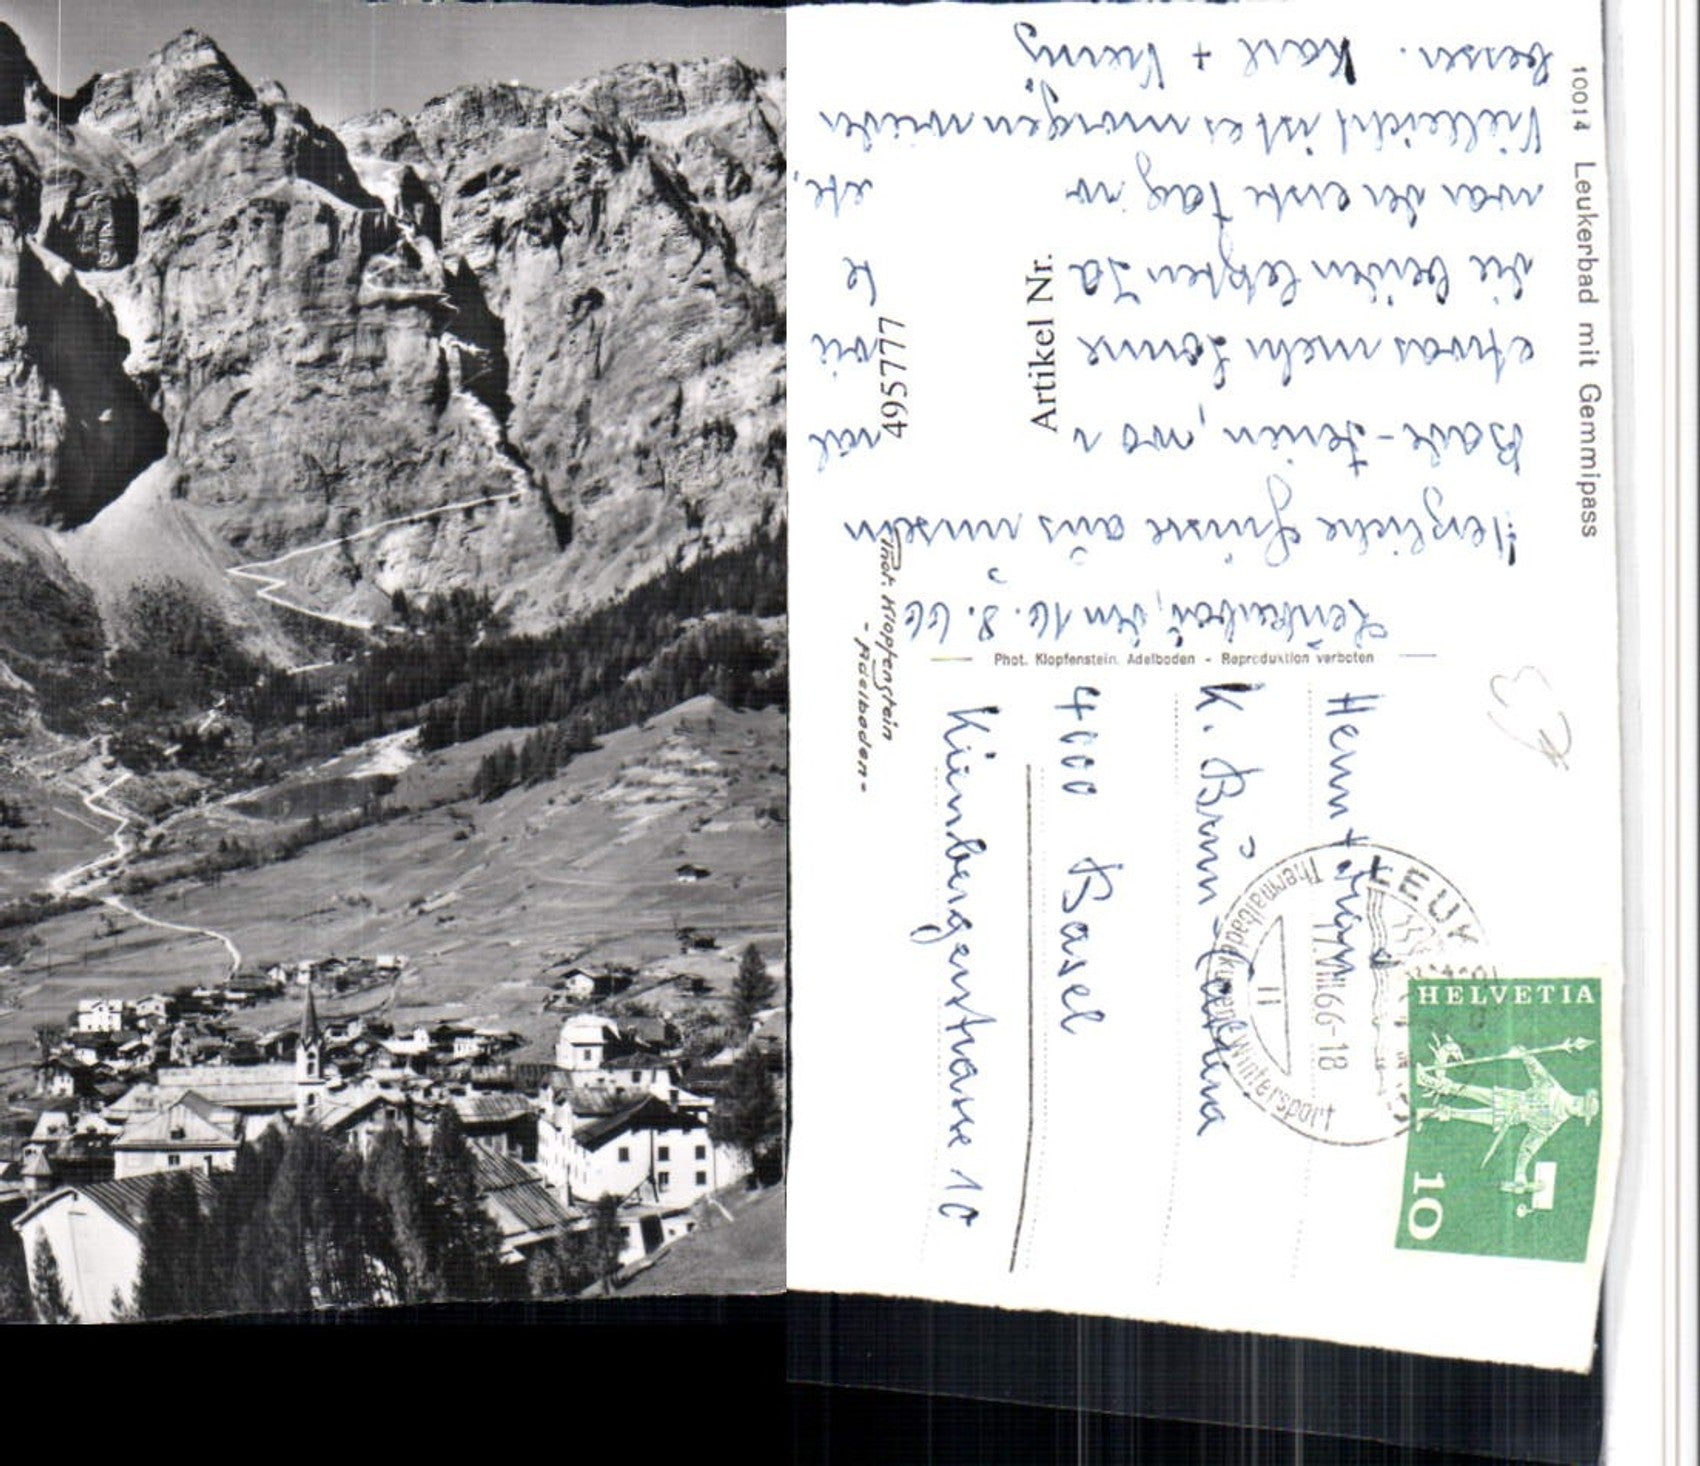 Phot. Klopfenstein
- Adelboden -
10014 Leukerbad mit Gemmipass
Leukerbad, den 16. 8. 66
Herzliche Grüsse aus unseren
Bade-Ferien, wo
etwas mehr Sonne wie
die beiden letzten
war der erste Tag
Vielleicht ist es morgen wieder
besser. Karl +
Artikel Nr.
495777
Phot. Klopfenstein, Adelboden - Reproduktion verboten
HELVETIA
10
LEUK
17.VIII.66-18
Thermalbadekuren Wintersport
Herrn +
K. Brun
4000 Basel
10